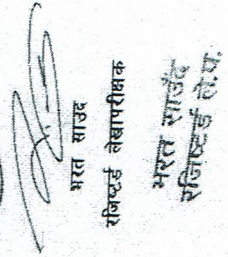 भरत साउद
रजिष्टर्ड लेखापरीक्षक
भरत साउद
रजिष्टर्ड ले.प.